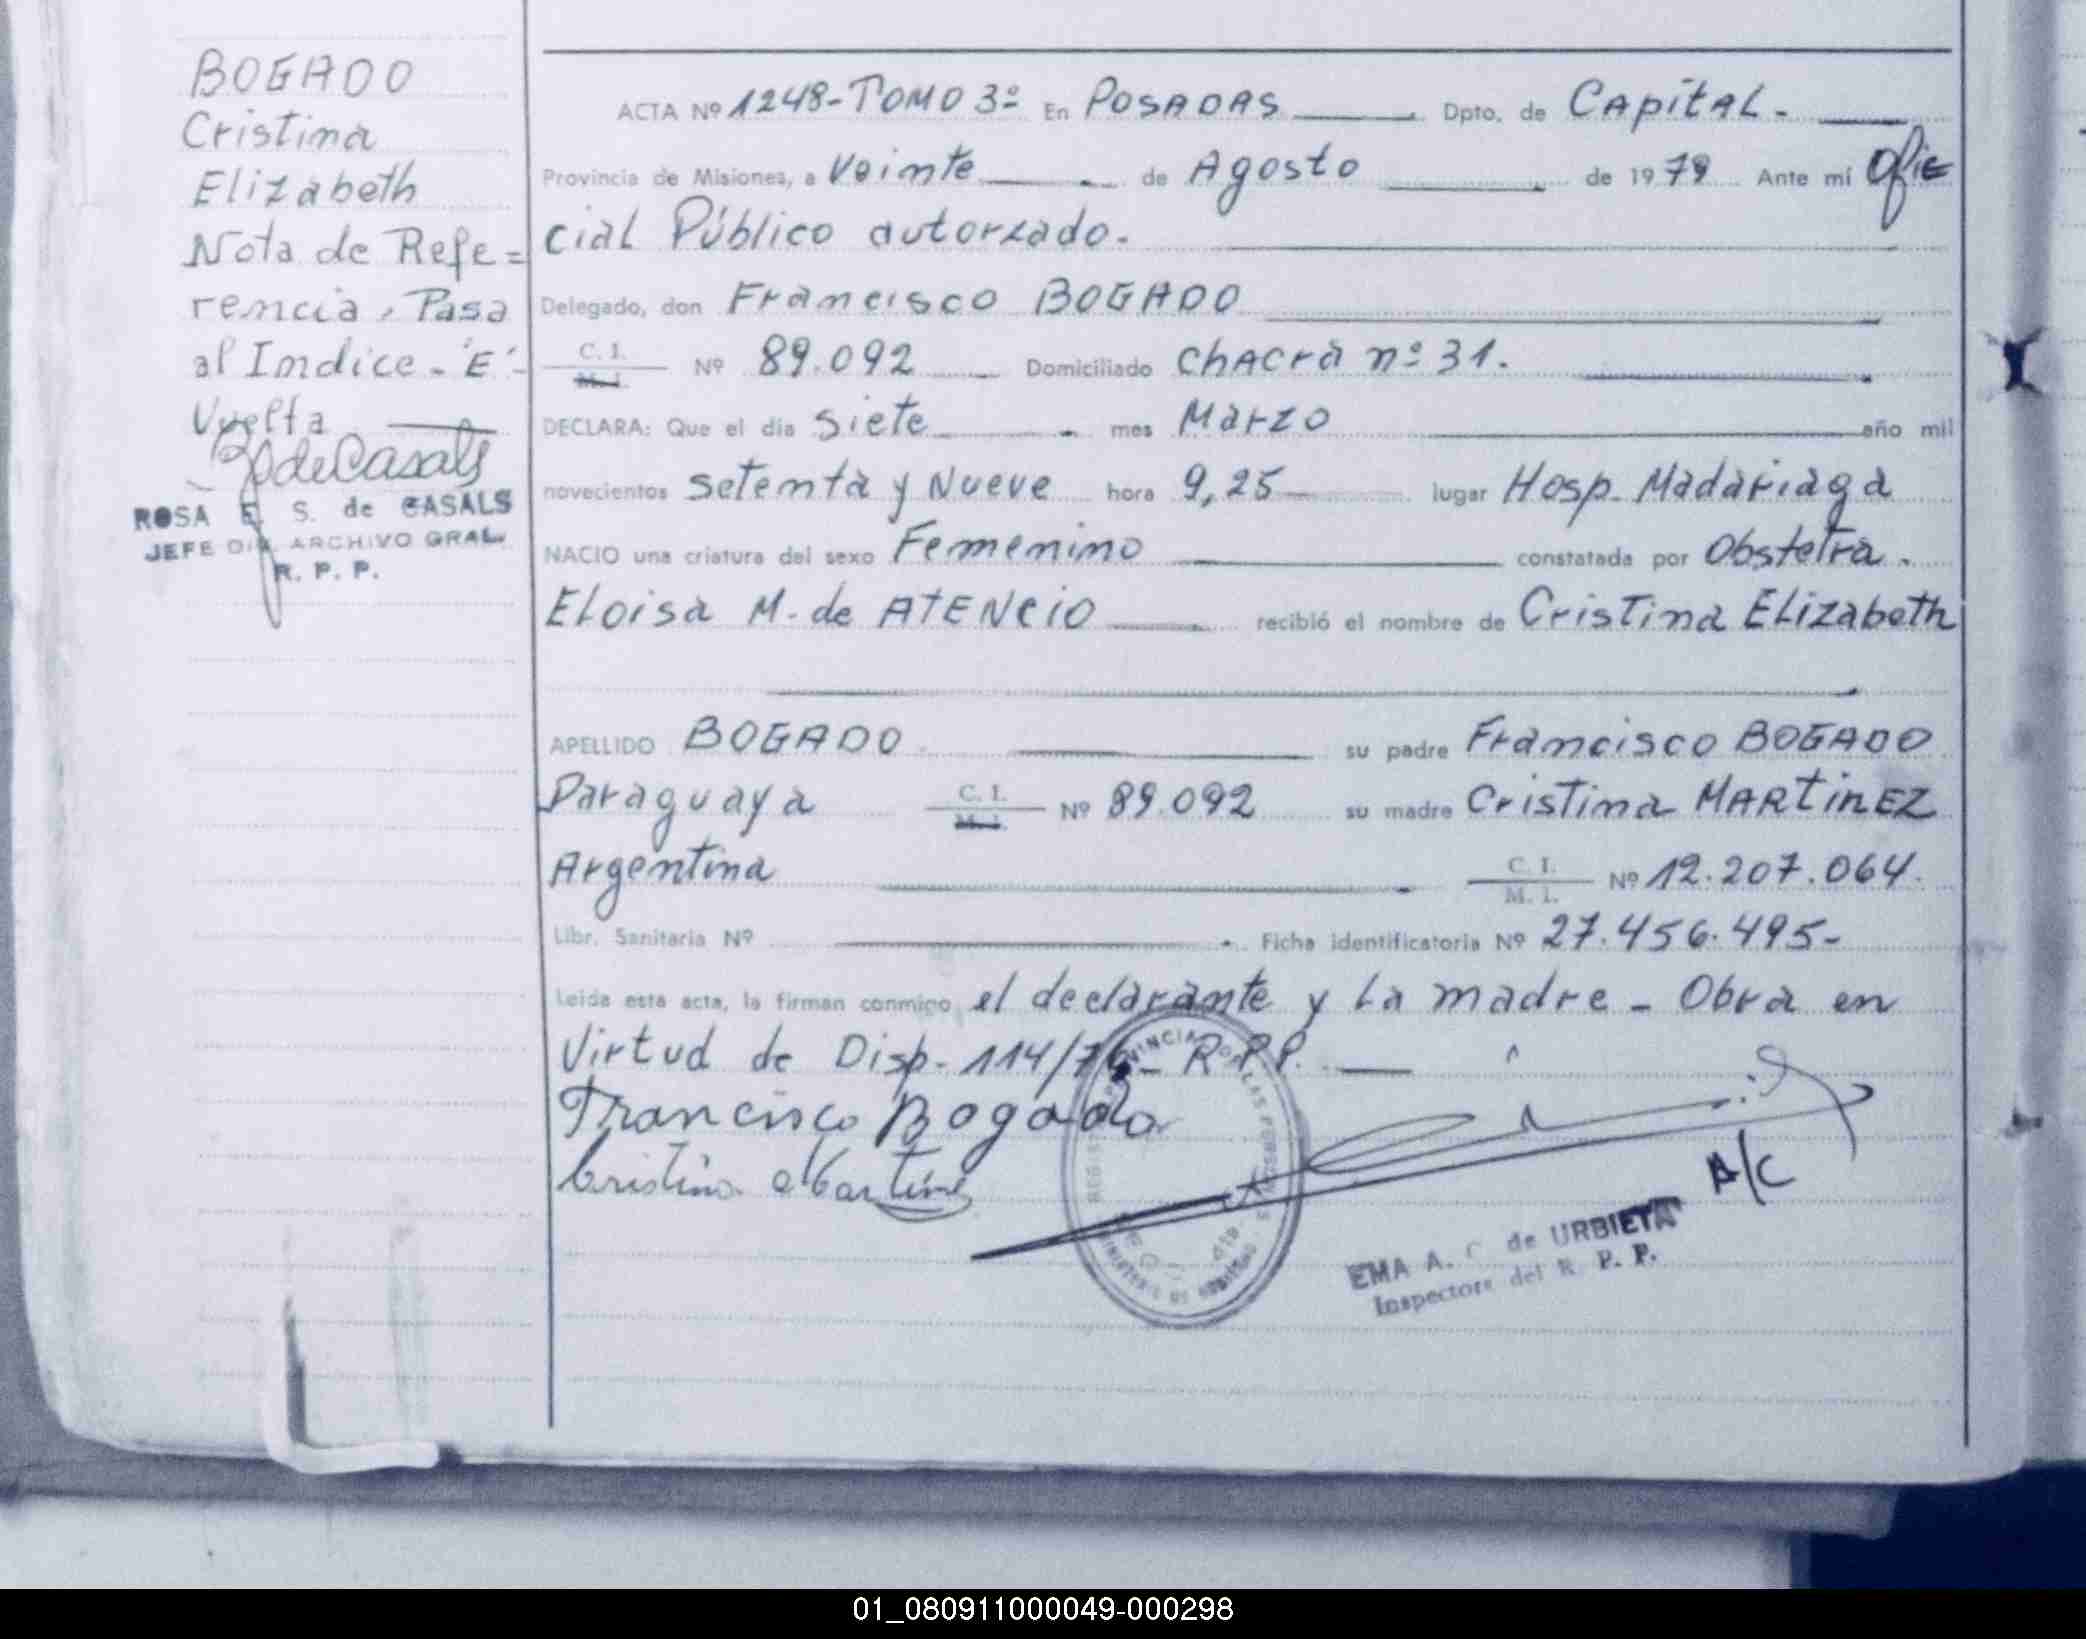 BOGADO
Cristina
Elizabeth
Nota de Refe=
rencia, Pasa
al Indice - 'E' -
Vuelta
ROSA E. S. de CASALS
JEFE ARCHIVO GRAL.
R. P. P.
ACTA Nº 1248-TOMO 3º En POSADAS Dpto. de CAPITAL.
Provincia de Misiones, a Veinte de Agosto de 1979 Ante mi Ofi
cial Público autorzado.
Delegado, don Francisco BOGADO
C. I. M. I. Nº 89.092 Domiciliado CHACRA nº 31.
DECLARA: Que el dia siete mes Marzo año mil
novecientos setenta y Nueve hora 9,25 lugar Hosp. Madariaga
NACIO una criatura del sexo Femenino constatada por Obstetra.
Eloisa M. de ATENCIO recibió el nombre de Cristina Elizabeth
APELLIDO BOGADO su padre Francisco BOGADO
Paraguaya C. I. M. I. Nº 89.092 su madre Cristina MARTINEZ
Argentina C. I. M. I. Nº 12.207.064.
Libr. Sanitaria Nº Ficha identificatoria Nº 27.456.495-
Leida esta acta, la firman conmigo el declarante y La madre - Obra en
Virtud de Disp. 114/76 - R.P.P.
Francisco Bogado
Cristina Martinez
A/C
EMA A. C. de URBIETA
Inspectora del R. P. P.
01_080911000049-000298